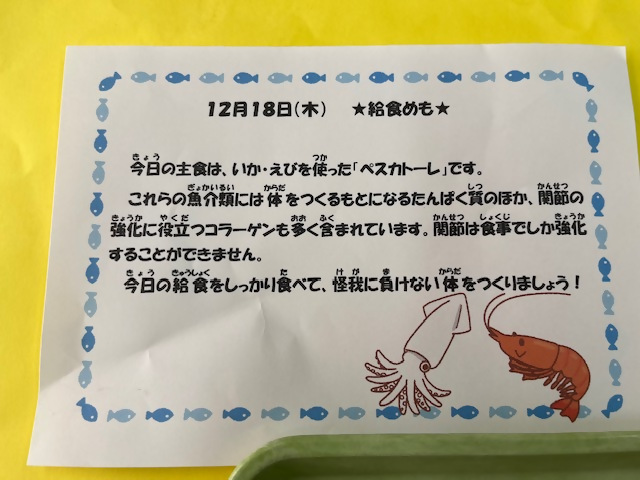 12月18日(木)　★給食めも★
今日の主食は、いか・えびを使った「ペスカトーレ」です。
これらの魚介類には体をつくるもとになるたんぱく質のほか、関節の
強化に役立つコラーゲンも多く含まれています。関節は食事でしか強化
することができません。
今日の給食をしっかり食べて、怪我に負けない体をつくりましょう！